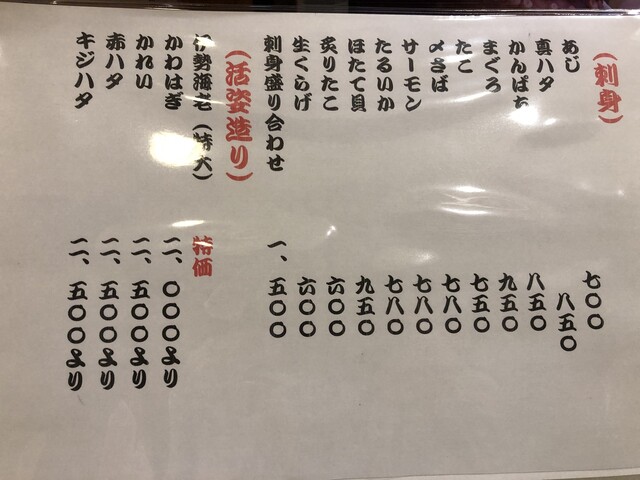 （刺身）
あじ 七〇〇
真ハタ 八五〇
かんぱち 八五〇
まぐろ 九五〇
たこ 七五〇
〆さば 七八〇
サーモン 七八〇
たるいか 七八〇
ほたて貝 九五〇
炙りたこ 六〇〇
生くらげ 六〇〇
刺身盛り合わせ 一、五〇〇
（活姿造り）
伊勢海老（特大） 特価
かわはぎ 二、〇〇〇より
かれい 二、五〇〇より
赤ハタ 二、五〇〇より
キジハタ 二、五〇〇より